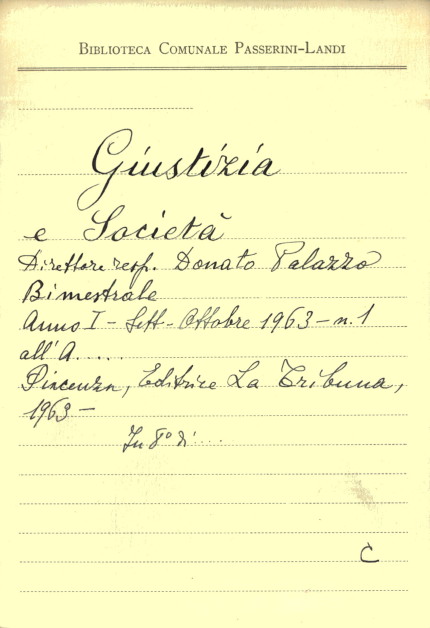 BIBLIOTECA COMUNALE PASSERINI-LANDI
Giustizia
e Società
Direttore resp. Donato Palazzo
Bimestrale
Anno I - Sett-Ottobre 1963 - n. 1
all'A. . . . .
Piacenza, Editrice La Tribuna,
1963 -
In 8° di . . . .
C